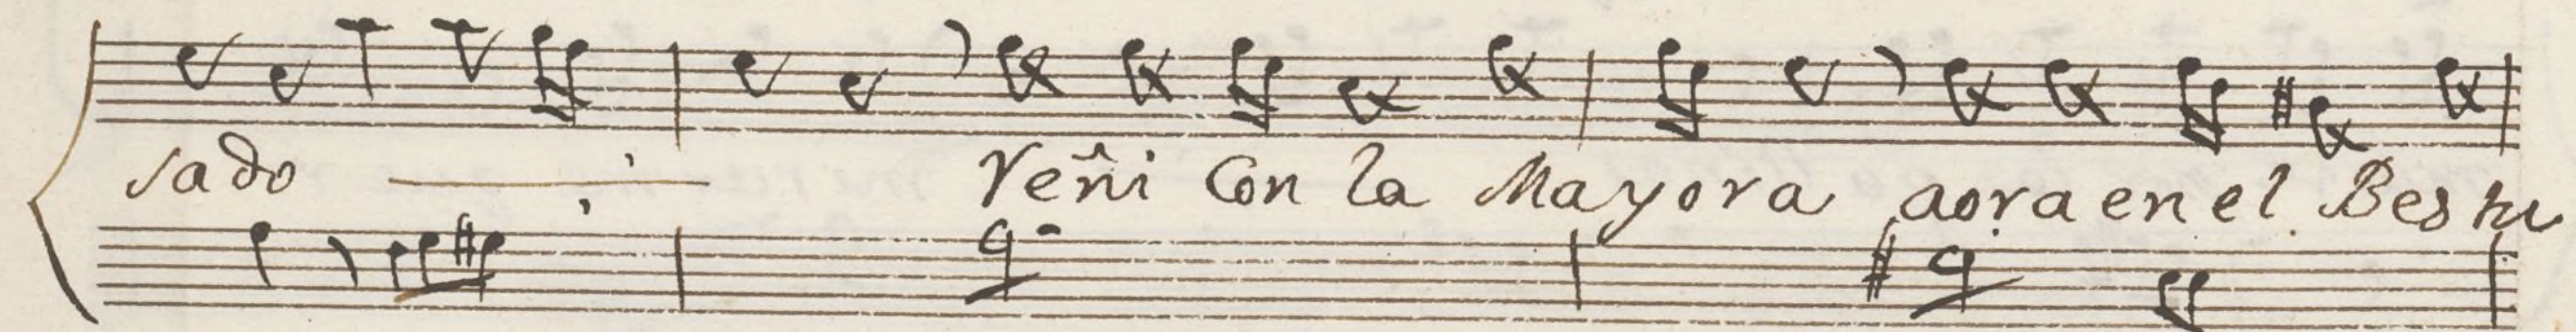 sado Veñi Con la Mayora aora en el Bestu